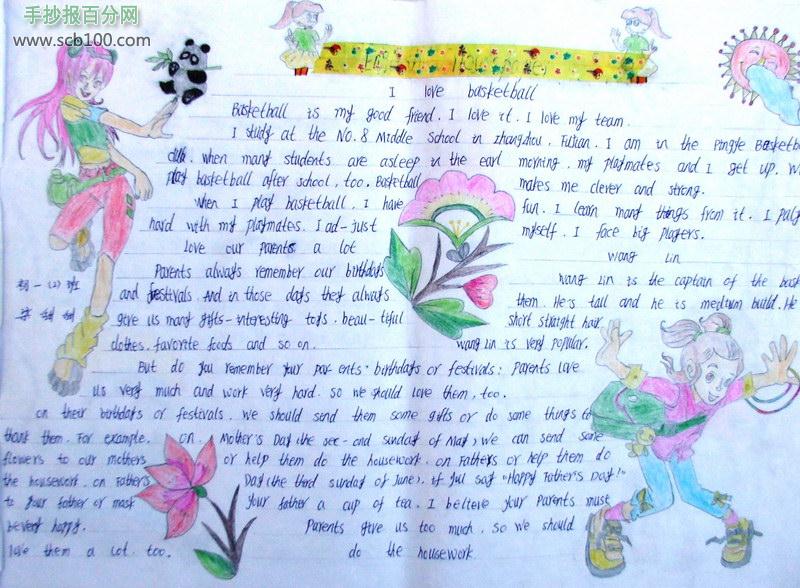 手抄报百分网
www.scb100.com
I love basketball
Basketball is my good friend. I love it. I love my team.
I study at the No. 8 Middle School in zhangzhou, Fujian. I am in the Pingfe Basketba
club. when many students are asleep in the earl morning, my playmates and I get up. W
play basketball after school, too. Basketball makes me clever and strong.
when I play basketball, I have fun. I learn many things from it. I pulg
hard with my playmates. I ad-just myself. I face big players.
love our parents a lot
wang Lin
Parents always remember our birthdays
wang Lin is the captain of the bask
and festivals. And in those days they always
them. He's tall and he is medium build. He
give us many gifts-interesting toys. beau-tiful
short straight hair.
clothes. favorite foods and so on.
wang Lin is very popular.
初一(2)班
But do you remember your par-ents' birthdays or festivals: parents love
us very much and work very hard. so we should love them, too.
on their birthdays or festivals. we should send them some gifts or do some things to
thank them. For example. on. Mother's Day (the sec-ond sunday of May) we can send some
flowers to our mothers or help them do the housework. on Fathers or help them do
the housework. on Father's Day (the third sunday of June). if yul say "Happy Father's Day!"
to your father or mask your father a cup of tea. I believe your parents must
be very happy. Parents give us too much. so we should
love them a lot. too. do the housework.